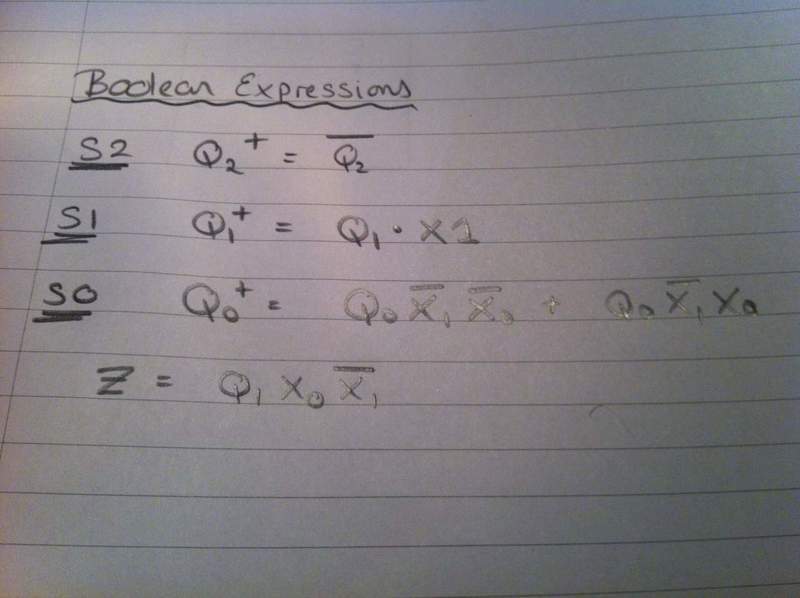 Boolean Expressions
S2 Q₂⁺ = Q̅₂
S1 Q₁⁺ = Q₁ · X1
S0 Q₀⁺ = Q₀ X̅₁ X̅₀ + Q₀ X̅₁ X₀
Z = Q₁ X₀ X̅₁